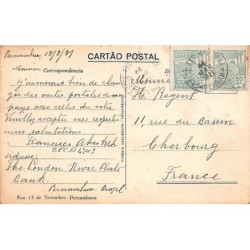 CARTÃO POSTAL
Correspondencia
Pernambuco, 18/3/27
Monsieur
J'aimerais bien de chan-
ger des cartes postales de mon
pays avec celles du votre
Veuillez accepter mes respec-
tueuses salutations
Francisco
adresse:
The London River Plate
Bank
Pernambuco - Brazil
Rua 15 de Novembro - Pernambuco
H. Regent
11, rue du Bassin
Cherbourg
France